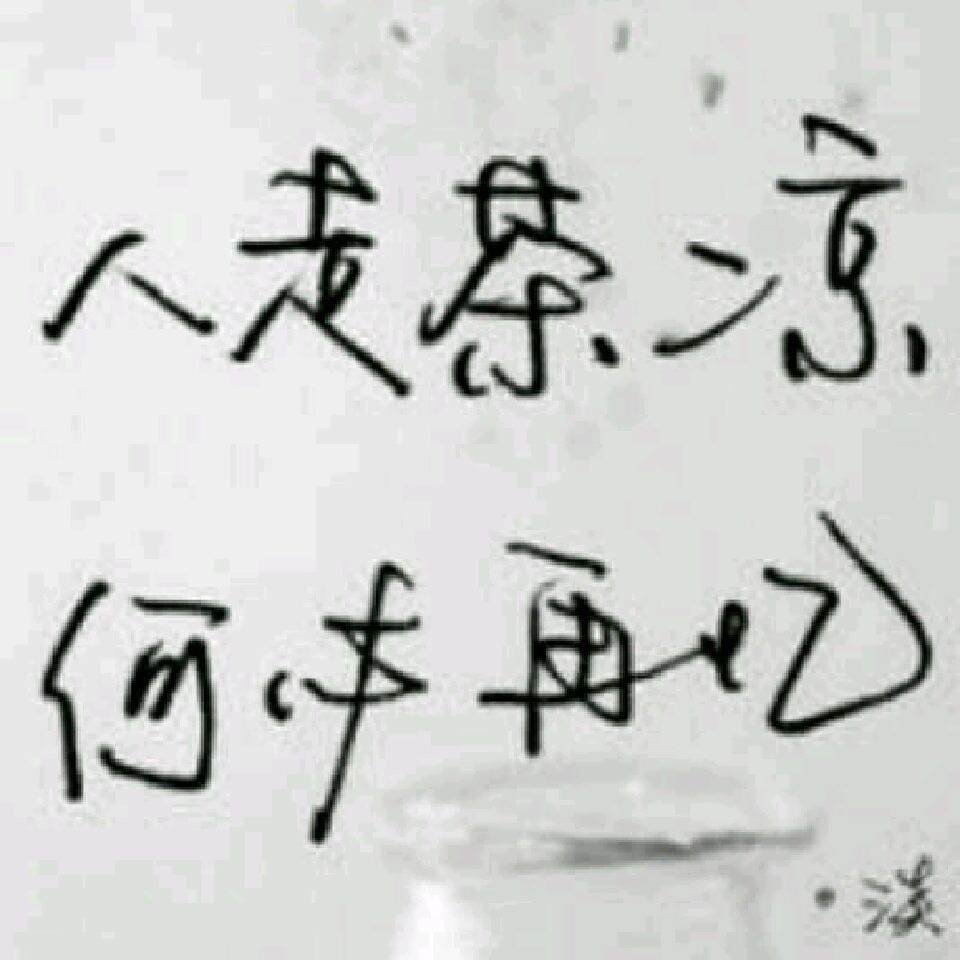 人走茶凉
何必再忆
·淡